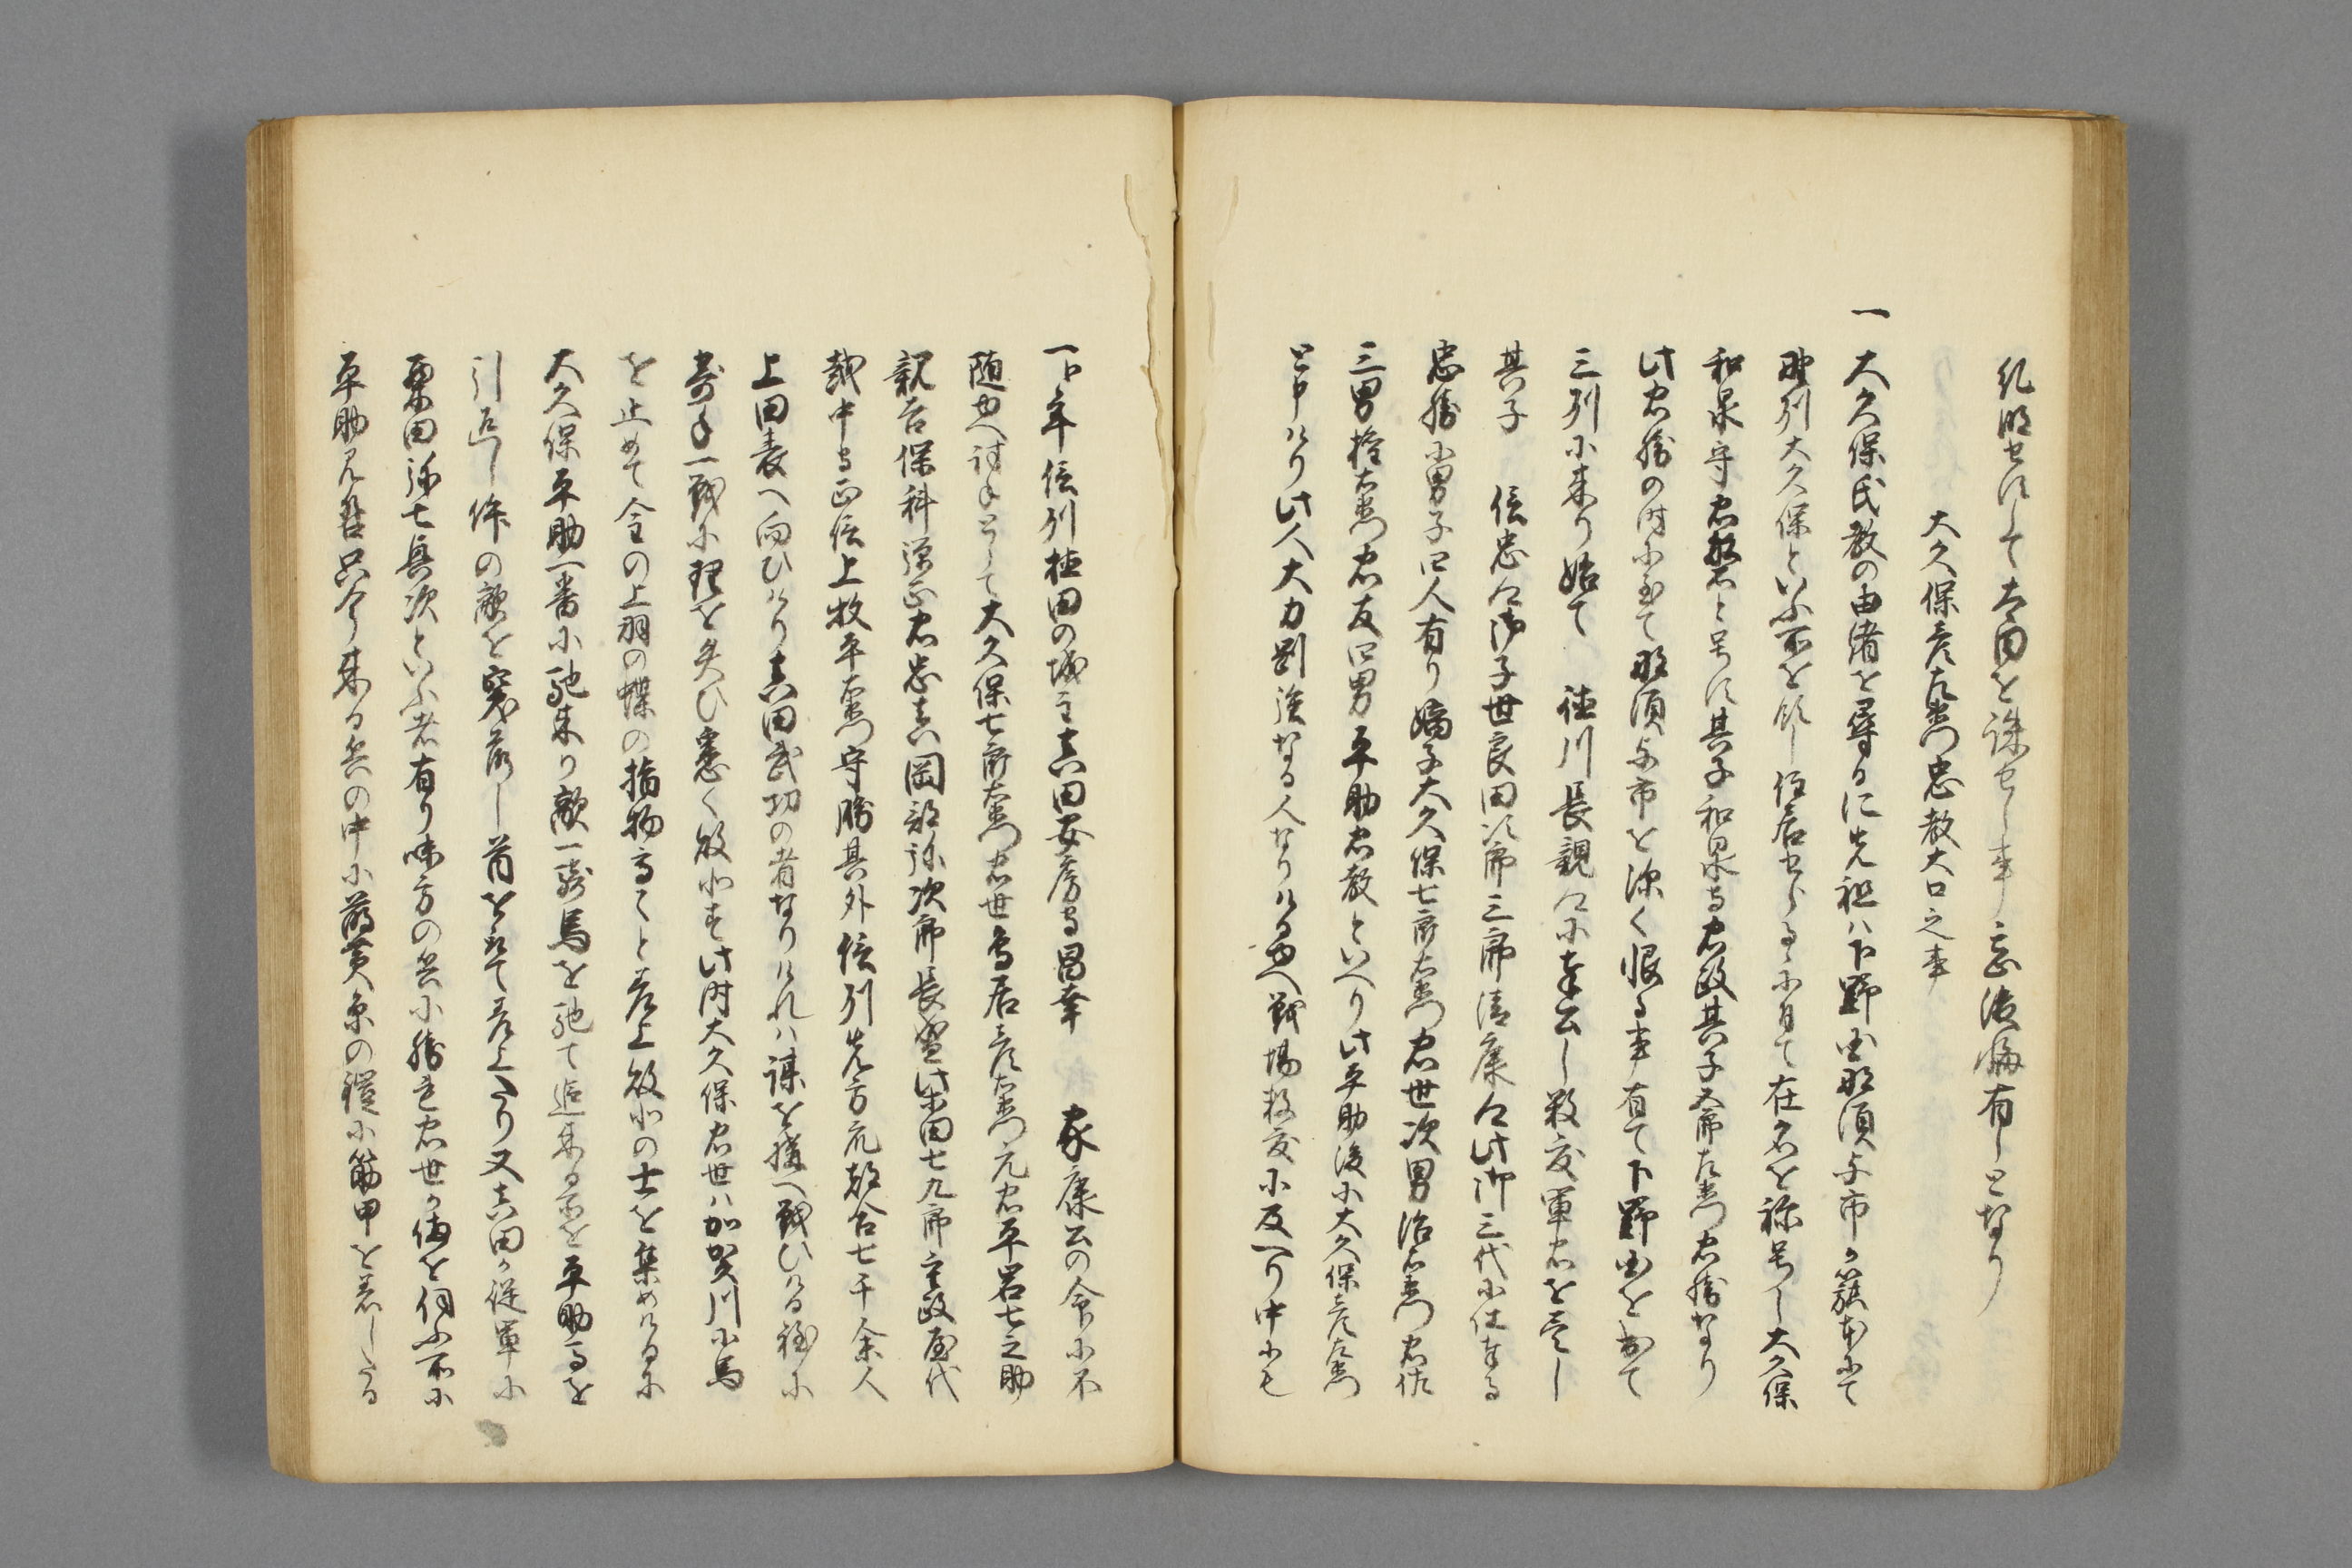 糺明せすして太田を誅せし事後悔有しとなり
大久保彦左衛門忠教大口之事
一大久保氏教の由緒を尋るに先祖ハ下野国那須与市か籏本にて
野州大久保といふ所を領し住居せらるゝに付て在名を称号し大久保
和泉守忠繁と号す其子和泉守忠政其子五郎左衛門忠勝なり
此忠勝の時に至て那須与市を深く恨る事有て下野国を出て
三州に来り始て 徳川長親公に奉公し数度軍忠を尽し
其子 信忠公御子世良田次郎三郎清康公此御三代に仕奉る
忠勝に男子四人有り嫡子大久保七郎右衛門忠世次男治右衛門忠佐
三男権右衛門忠友四男平助忠教といへり此平助後に大久保彦左衛門
と申けり此人大力剛強なる人なりける故へ戦場数度に及へり中にも
一ト年信州植田の城主真田安房守昌幸 家康公の命に不
随故へ討手として大久保七郎右衛門忠世鳥居彦右衛門元忠平岩七之助
親吉保科弾正忠忠真岡部弥次郎長盛柴田七九郎重政屋代
越中守正信上牧平右衛門守勝其外信州先方衆都合七千余人
上田表へ向ひけり真田武功の者なりけれハ謀を構へ戦ひける程に
寄手一戦に理を失ひ悉く敗北す此時大久保忠世ハ加賀川に馬
を止めて金の上羽の蝶の指物高々と差上敗北の士を集めけるに
大久保平助一番に馳来り敵一騎馬を馳て追来る所を平助馬を
引返し件の敵を突落し首を取て差上たり又真田か従軍に
栗田弥七兵次といふ者有り味方の兵に勝き忠世か備を伺ふ所に
平助久芸只今来る兵の中に萌黄糸の鎧に筋甲を着したる